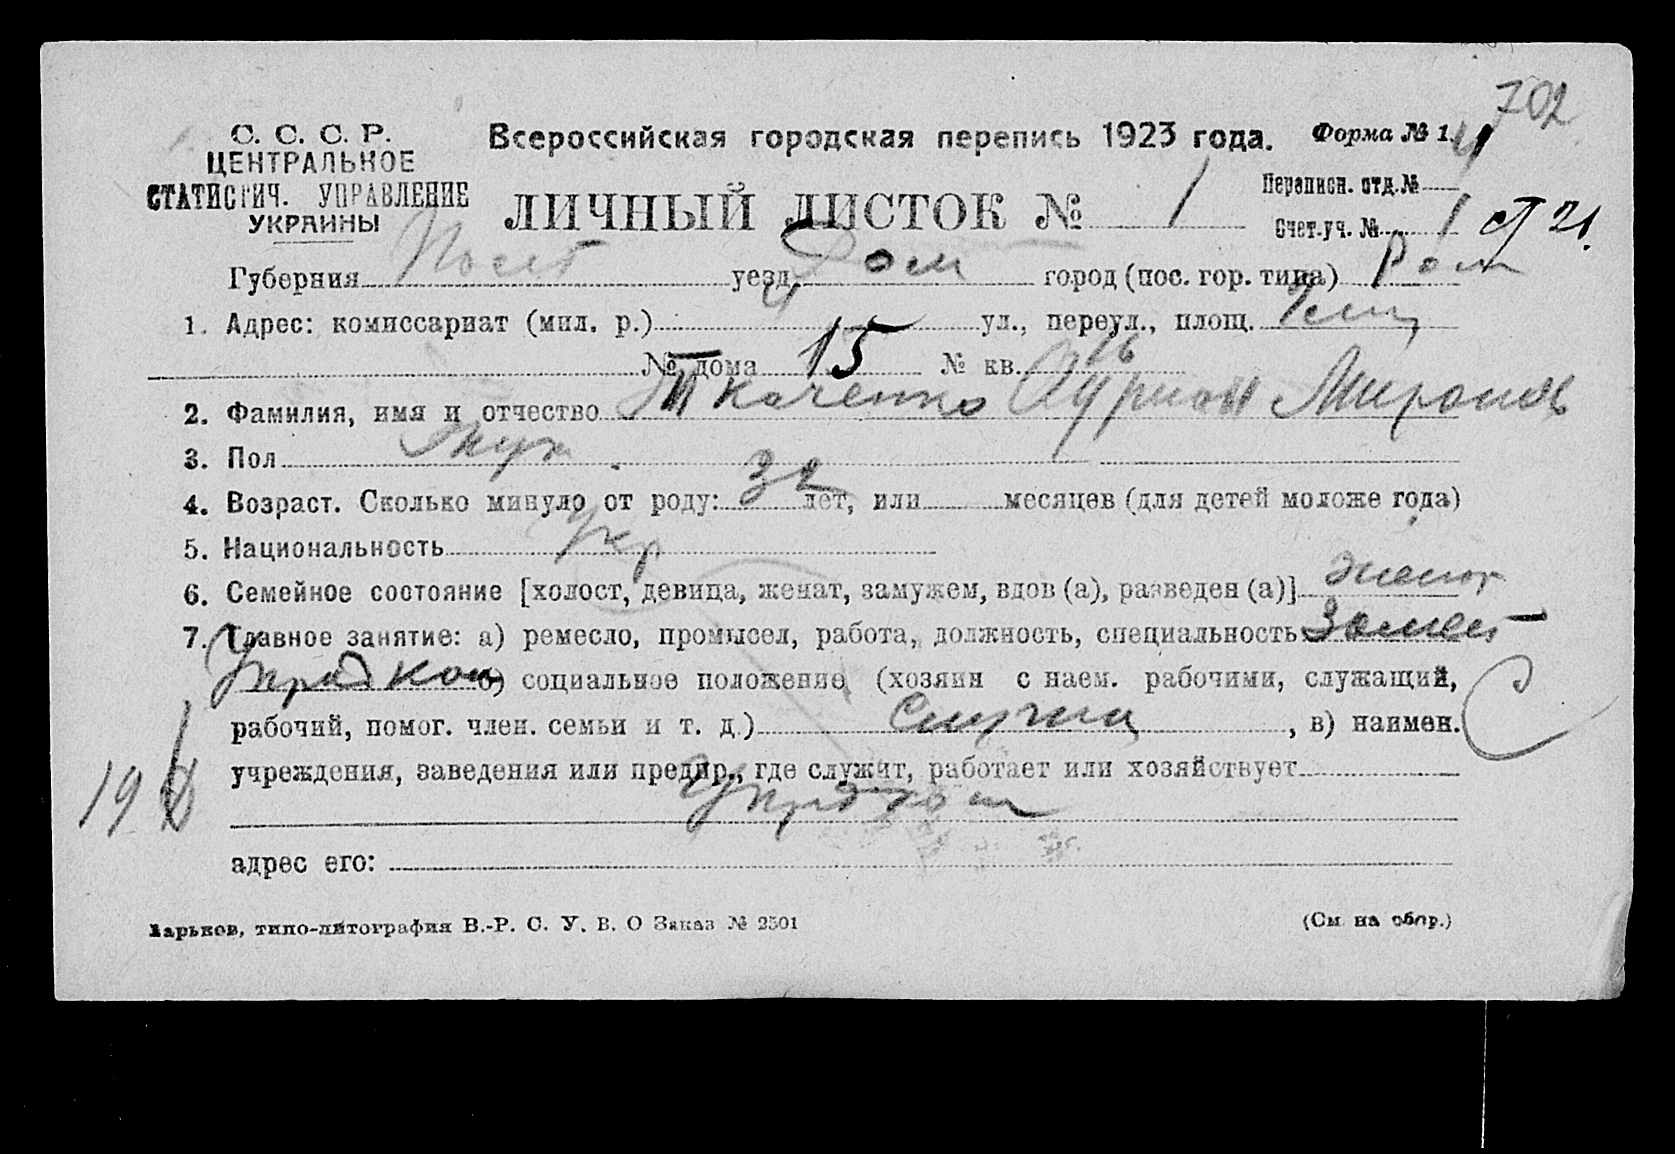 702
С. С. С. Р.
ЦЕНТРАЛЬНОЕ
СТАТИСТИЧ. УПРАВЛЕНИЕ
УКРАИНЫ
Всероссийская городская перепись 1923 года.
Форма № 1.
Переписн. отд. №
ЛИЧНЫЙ ЛИСТОК № 1
Счет.уч. № 1
21.
Губерния уезд город (пос. гор. типа)
1. Адрес: комиссариат (мил. р.) 4 ул., переул., площ.
№ дома 15 № кв. 16
2. Фамилия, имя и отчество Ткаченко Миронов
3. Пол муж
4. Возраст. Сколько минуло от роду: 32 лет, или месяцев (для детей моложе года)
5. Национальность укр
6. Семейное состояние [холост, девица, женат, замужем, вдов (а), разведен (а)] женат
7. Главное занятие: а) ремесло, промысел, работа, должность, специальность
б) социальное положение (хозяин с наем. рабочими, служащий,
рабочий, помог. член. семьи и т. д.) Служащ, в) наимен.
учреждения, заведения или предпр., где служит, работает или хозяйствует
19
адрес его:
Харьков, типо-литография В.-Р. С. У. В. О Заказ № 2501
(См. на обор.)